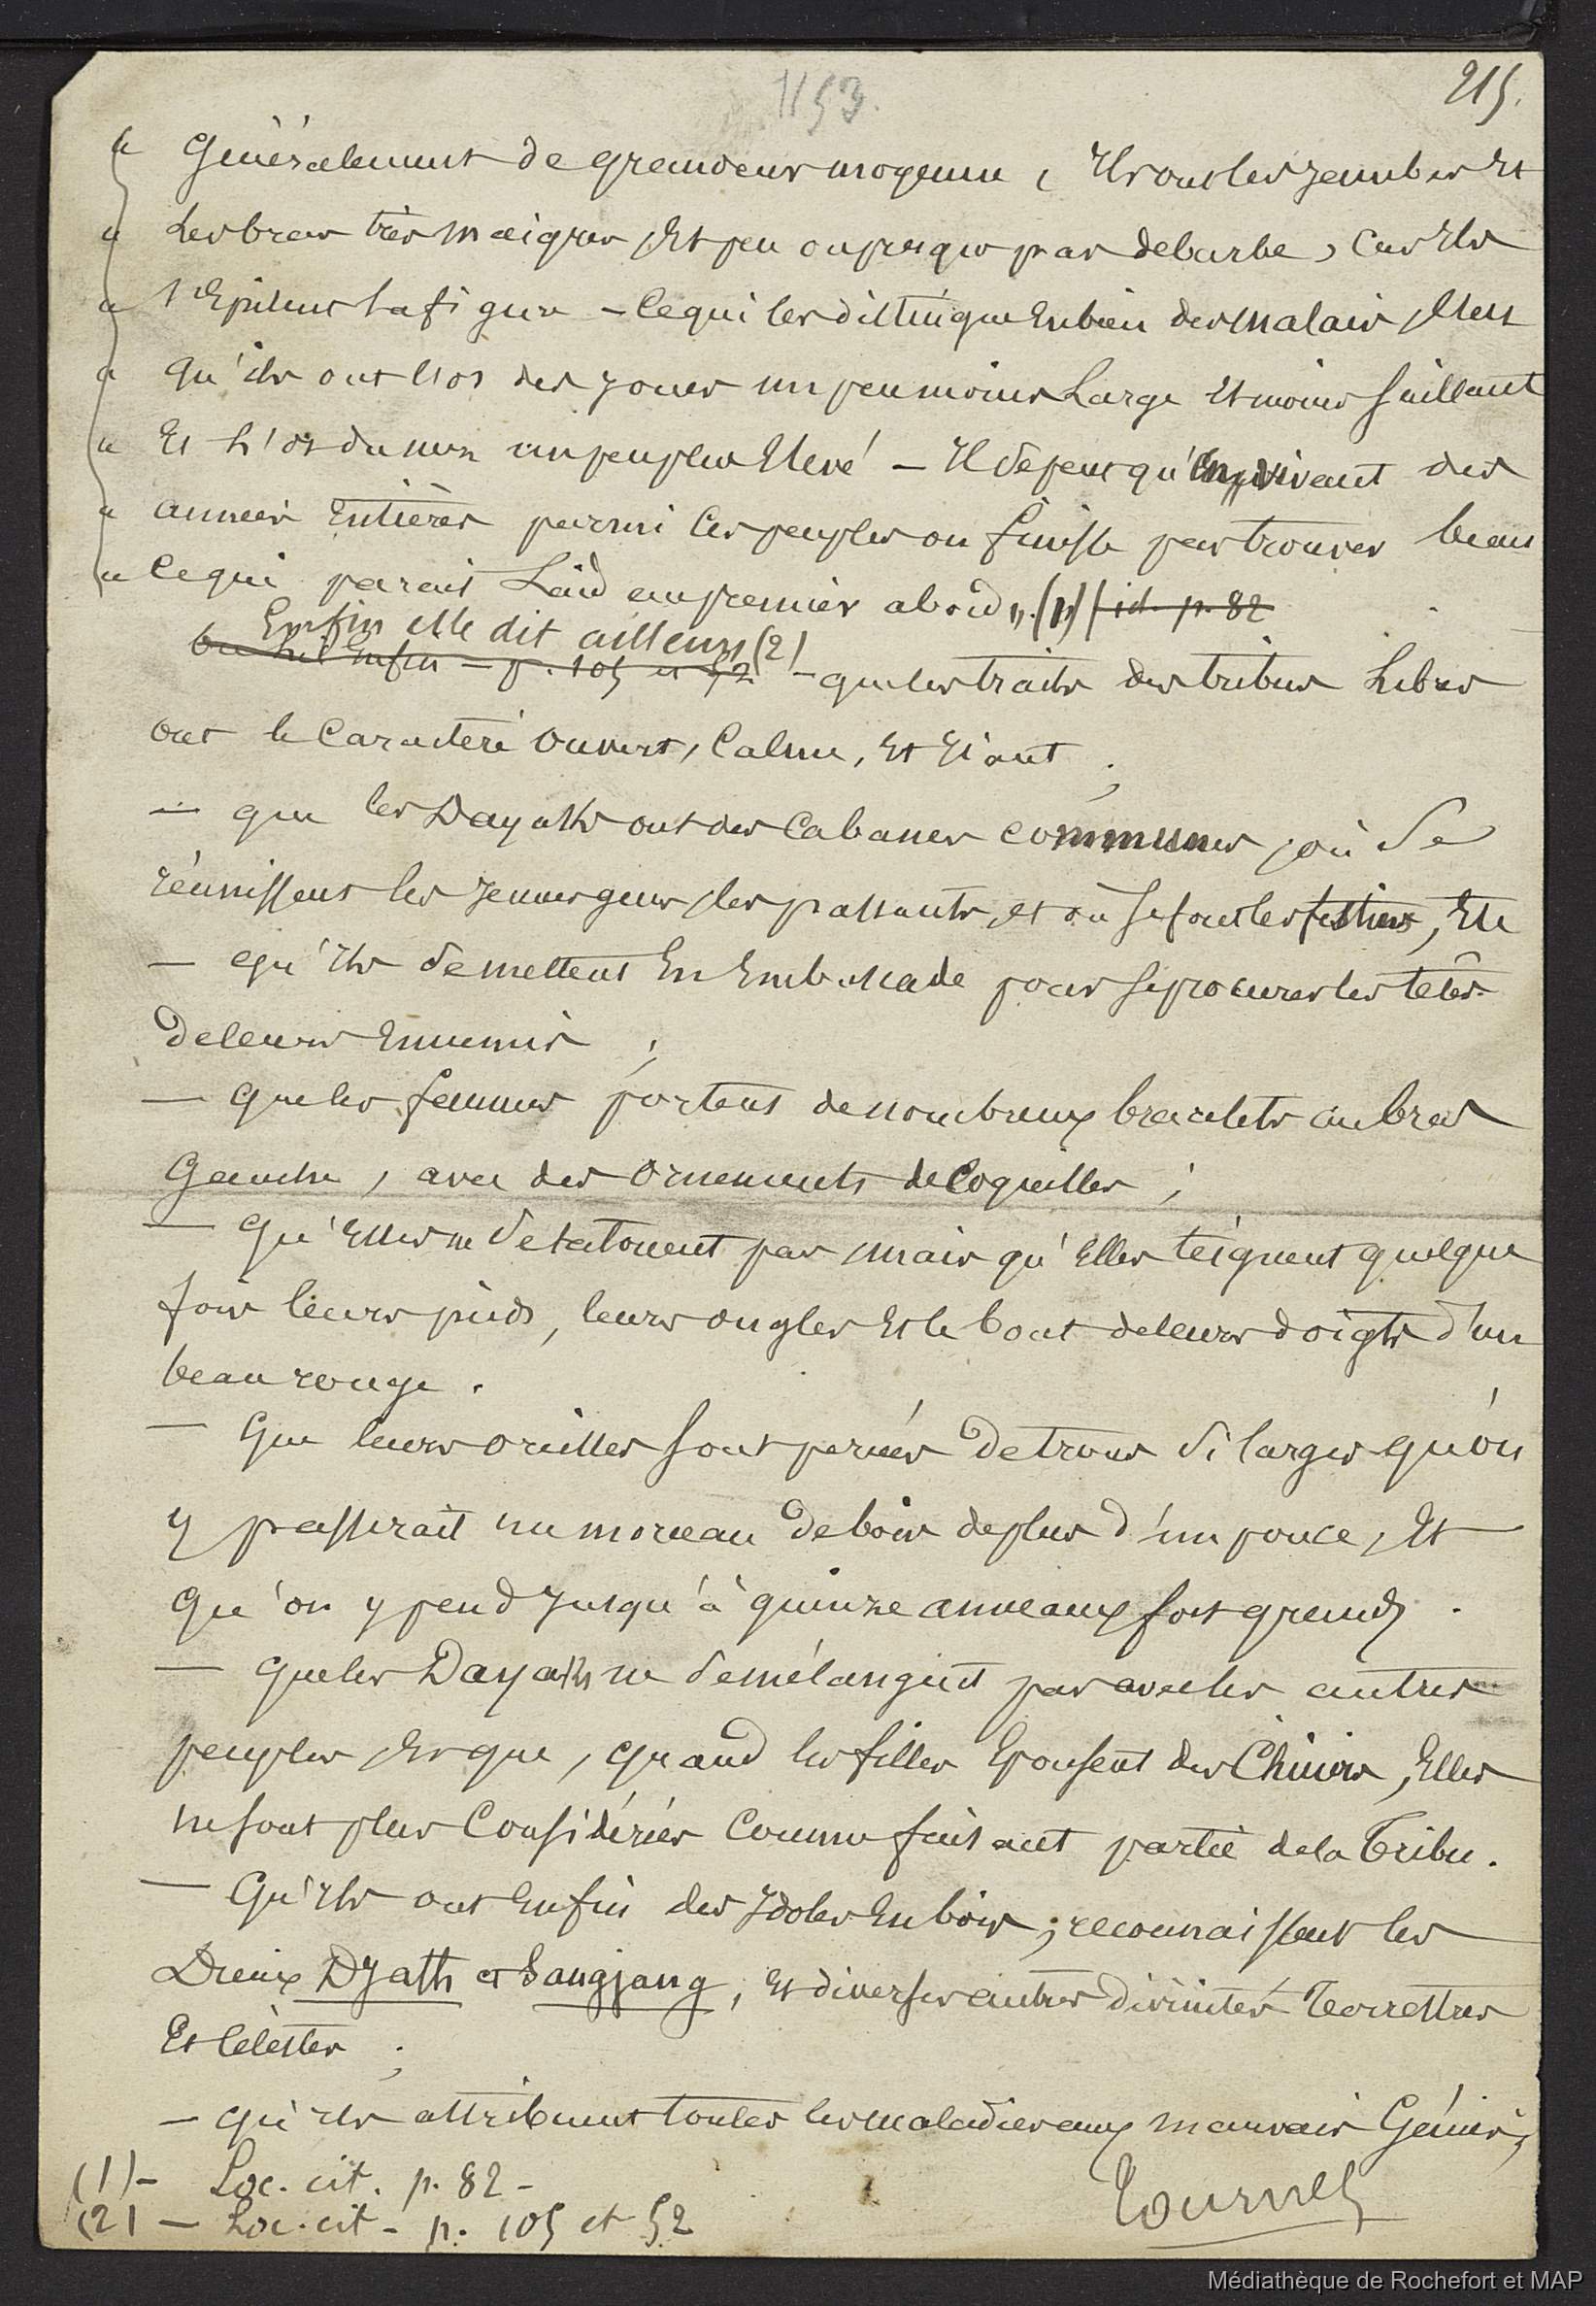 1153.
215.
« Généralement de grandeur moyenne, Ils ont les jambes Et
« Les bras très maigres, Et peu ou presque pas de barbe, Car Ils
« s'Epilent la figure – Ce qui les distingue Enbien des malais, c'est
« qu'ils ont l'os des joues un peu moins Large Et moins saillant
« Et L'os du nez un peu plus Elevé – Il se peut qu'en vivant des
« années Entières parmi Ces peuples on finisse par trouver beau
« Ce qui parait Laid au premier abord ». (1) (id. p. 82
Enfin elle dit ailleurs (2)
Enfin – p. 105 et 52 – que les traits des tribus Libres
ont le Caractère Ouvert, Calme, Et Riant ;
– que les Dayaks ont des Cabanes communes, où Se
réunissent les Jeunes gens, les passants, et où se font les festins, Etc
– qu'Ils Se mettent En Embuscade pour se procurer les têtes
de leurs Ennemis ;
– Que les femmes portent de nombreux bracelets au bras
Gauche, avec des Ornements de Coquilles ;
– Qu'Elles ne Se tatouent pas, mais qu'Elles teignent quelque
fois leurs pieds, leurs ongles Et le bout de leurs doigts d'un
beau rouge.
– Que leurs oreilles sont percées De trous Si larges qu'on
y passerait un morceau De bois de plus d'un pouce, Et
Qu'on y pend Jusqu'à quinze anneaux fort grands.
– Que les Dayaks ne Se mélangent pas avec les autres
peuples, Et que, quand les filles Epousent des Chinois, Elles
ne sont plus Considérées Comme faisant partie de la Tribu.
– Qu'Ils ont Enfin des Idoles En bois ; reconnaissent les
Dieux Djath et Sangjang, Et diverses autres Divinités Terrestres
Et Célestes ;
– Qu'Ils attribuent toutes les maladies aux mauvais Génies,
(1) – Loc. cit. p. 82 –
(2) – Loc. cit – p. 105 et 52
Tournez
Médiathèque de Rochefort et MAP